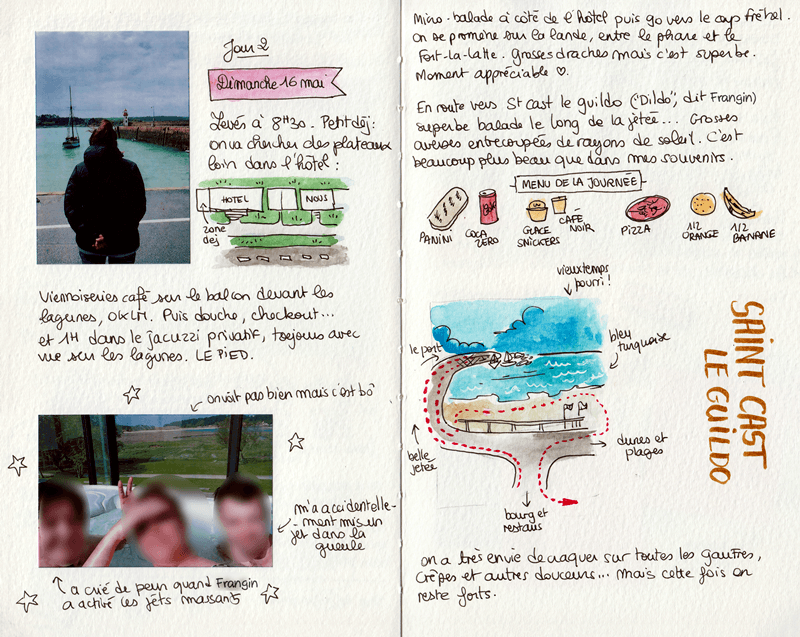 Jour 2
Dimanche 16 mai
Levés à 8H30. Petit déj:
on va chercher des plateaux
loin dans l'hôtel :
HOTEL
NOUS
zone
dej
Viennoiseries café sur le balcon devant les
lagunes, OKLM. Puis douche, checkout...
et 1H dans le jacuzzi privatif, toujours avec
vue sur les lagunes. LE PIED.
on voit pas bien mais c'est bô
m'a accidentelle-
-ment mis un
jet dans la
gueule
a crié de peur quand Frangin
a activé les jets massants
Micro-balade à côté de l'hôtel puis go vers le cap Fréhel.
On se promène sur la lande, entre le phare et le
Fort-La-Latte. Grosses draches mais c'est superbe.
Moment appréciable ♡.
En route vers St Cast le guildo ("Dildo", dit Frangin)
superbe balade le long de la jetée... Grosses
averses entrecoupées de rayons de soleil. C'est
beaucoup plus beau que dans mes souvenirs.
MENU DE LA JOURNÉE
PANINI
COCA
ZERO
GLACE
SNICKERS
CAFÉ
NOIR
PIZZA
1/2
ORANGE
1/2
BANANE
vieux temps
pourri !
le port
bleu
turquoise
belle
jetée
dunes et
plages
bourg et
restaus
SAINT CAST
LE GUILDO
On a très envie de craquer sur toutes les gaufres,
crêpes et autres douceurs... Mais cette fois on
reste forts.